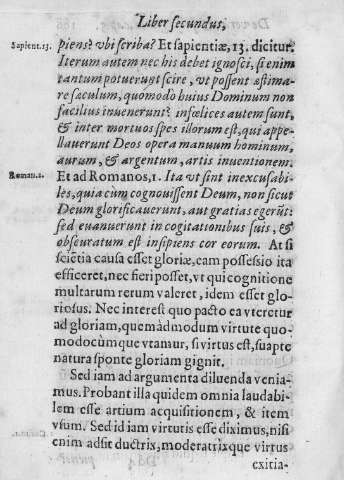 Liber secundus,
Sapient. 13. piens? vbi scriba? Et sapientiæ, 13. dicitur.
Iterum autem nec his debet ignosci, si enim
tantum potuerunt scire, vt possent æstima-
re sæculum, quomodo huius Dominum non
facilius inuenerunt? infœlices autem sunt,
& inter mortuos spes illorum est, qui appel-
lauerunt Deos opera manuum hominum,
aurum, & argentum, artis inuentionem.
Roman. 1. Et ad Romanos, 1. Ita vt sint inexcusabi-
les, quia cùm cognouissent Deum, non sicut
Deum glorificauerunt, aut gratias egerũt:
sed euanuerunt in cogitationibus suis, &
obscuratum est insipiens cor eorum. At si
sciẽtia causa esset gloriæ, eam possessio ita
efficeret, nec fieri posset, vt qui cognitione
multarum rerum valeret, idem esset glo-
riosus. Nec interest quo pacto ea vteretur
ad gloriam, quemàdmodum virtute quo-
modocùmque vtamur, si virtus est, suapte
natura sponte gloriam gignit.
Sed iam ad argumenta diluenda venia-
mus. Probant illa quidem omnia laudabi-
lem esse artium acquisitionem, & item
vsum. Sed id iam virtutis esse diximus, nisi
enim adsit ductrix, moderatrixque virtus
exitia-